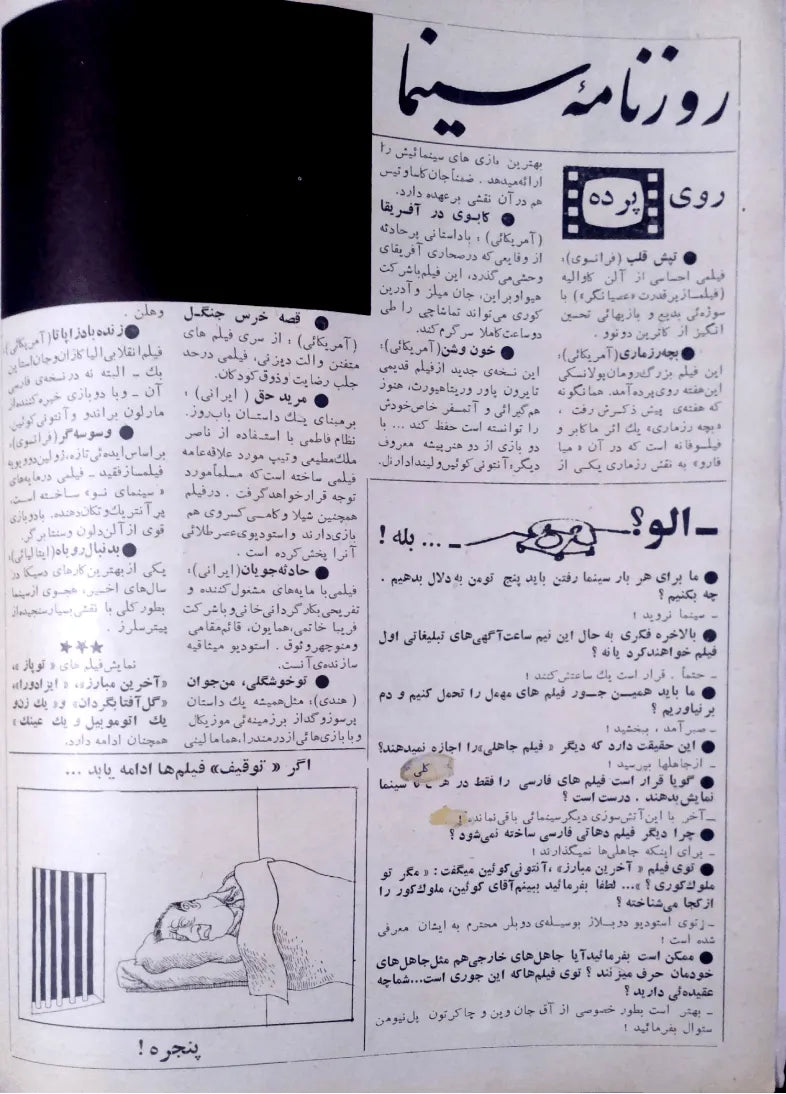 روزنامهٔ سینما
روی پرده
● تپش قلب (فرانسوی):
فیلمی احساسی از آلن کاوالیه
(فیلمساز پرقدرت «عصیانگر») با
سوژه‌ئی بدیع و بازیهائی تحسین
انگیز از کاترین دونوو .
● بچه رزماری (آمریکائی):
این فیلم بزرگ رومان پولانسکی
این‌هفته روی‌پرده آمد. همانگونه
که هفته‌ی پیش ذکرش رفت ،
«بچه رزماری» یك اثر ماکابر و
فیلسوفانه است که در آن « میا
فارو» به نقش رزماری یکی از
بهترین بازی های سینمائیش را
ارائه میدهد . ضمناً جان کاساوتیس
هم در آن نقشی برعهده دارد.
● کابوی در آفریقا
(آمریکائی) : باداستانی پرحادثه
از وقایعی که در صحاری آفریقای
وحشی می‌گذرد، این فیلم باشرکت
هیو اوبراین، جان میلز و آدرین
کوری می‌تواند تماشاچی را طی
دو ساعت کاملا سرگرم کند.
● خون و شن (آمریکائی):
این نسخه‌ی جدید از فیلم قدیمی
تایرون پاور و ریتا هیورث، هنوز
هم گیرائی و آتمسفر خاص خودش
را توانسته است حفظ کند ... با
دو بازی از دو هنرپیشه معروف
دیگر: آنتونی کوئین و لیندا دارنل.
● قصه خرس جنگـل
(آمریکائی) : از سری فیلم های
متفنن والت دیزنی، فیلمی درحد
جلب رضایت و ذوق کودکان.
● مرید حق ( ایرانی ) :
برمبنای یك داستان باب‌روز.
نظام فاطمی با استفاده از ناصر
ملك‌مطیعی و تیپ مورد علاقه عامه
فیلمی ساخته است که مسلماً مورد
توجه قرار خواهد گرفت . در فیلم
همچنین شیلا و کامی کسروی هم
بازی دارند و استودیوی عصر طلائی
آنرا پخش کرده است .
● حادثه‌جویان (ایرانی):
فیلمی با مایه‌های مشغول کننده و
تفریحی بکارگردانی خانی و باشرکت
فریبا خاتمی، همایون، قائم‌مقامی
و منوچهر وثوق . استودیو میثاقیه
سازنده‌ی آنست.
● توخوشگلی، من‌جوان
(هندی) : مثل همیشه یك داستان
پرسوزوگداز برزمینه‌ئی موزیکال
و با بازی‌هائی از درمندرا، هما مالینی
وهلن .
● زنده باد زاپاتا (آمریکائی):
فیلم انقلابی الیا کازان و جان استاین
بك - البته نه در نسخه‌ی فارسی
آن - و با دو بازی خیره کننده از
مارلون براندو و آنتونی کوئین
● وسوسه‌گر (فرانسوی):
بر اساس ایده‌ئی تازه، ژولین دوویویه
فیلمساز فقید - فیلمی در مایه‌های
« سینمای نو» ساخته است،
پر آنتریك و تکان‌دهنده. بادو بازی
قوی از آلن دلون و سنتا برگر.
● بدنبال روباه (ایتالیائی):
یکی از بهترین کارهای دسیکا در
سال‌های اخیر، هجوی از سینما
بطور کلی با نقشی بسیار سنجیده از
پیتر سلرز .
★★★
نمایش فیلم های « توپاز »،
«آخرین مبارز»، « ایزادورا»،
«گل آفتابگردان» و« یك زن و
یك اتوموبیل و یك عینك»
همچنان ادامه دارد.
ـ الو؟ ـ ... بله !
● ما برای هر بار سینما رفتن باید پنج تومن به دلال بدهیم .
چه بکنیم ؟
ـ سینما نروید !
● بالاخره فکری به حال این نیم ساعت آگهی‌های تبلیغاتی اول
فیلم خواهند کرد یا نه ؟
ـ حتماً . قرار است یك ساعتش کنند !
● ما باید همیـن جـور فیلم های مهمل را تحمل کنیم و دم
برنیاوریم ؟
ـ صبر آمد ، ببخشید !
● این حقیقت دارد که دیگر « فیلم جاهلی» را اجازه نمیدهند؟
ـ از جاهلها بپرسید !
کلی
● گویا قرار است فیلم های فارسی را فقط در سینما
نمایش بدهند . درست است ؟
ـ آخر با این آتش‌سوزی دیگر سینمائی باقی نمانده !
● چرا دیگر فیلم دهاتی فارسی ساخته نمی‌شود ؟
ـ برای اینکه جاهلی‌ها نمیگذارند !
● توی فیلم « آخرین مبارز» ، آنتونی کوئین میگفت: « مگر تو
ملوك‌کوری ؟ »... لطفا بفرمائید ببینم آقای کوئین، ملوك‌کور را
از کجا می‌شناخته ؟
ـ توی استودیو دوبلاژ بوسیله‌ی دوبلر محترم به ایشان معرفی
شده است !
● ممکن است بفرمائید آیا جاهل‌های خارجی هم مثل جاهل‌های
خودمان حرف میزنند ؟ توی فیلم‌ها که این جوری است...شما چه
عقیده‌ئی دارید ؟
ـ بهتر است بطور خصوصی از آق جان وین و چاکرتون پل‌نیومن
سئوال بفرمائید !
اگر « توقیف» فیلم‌ها ادامه یابد ...
پنجره !